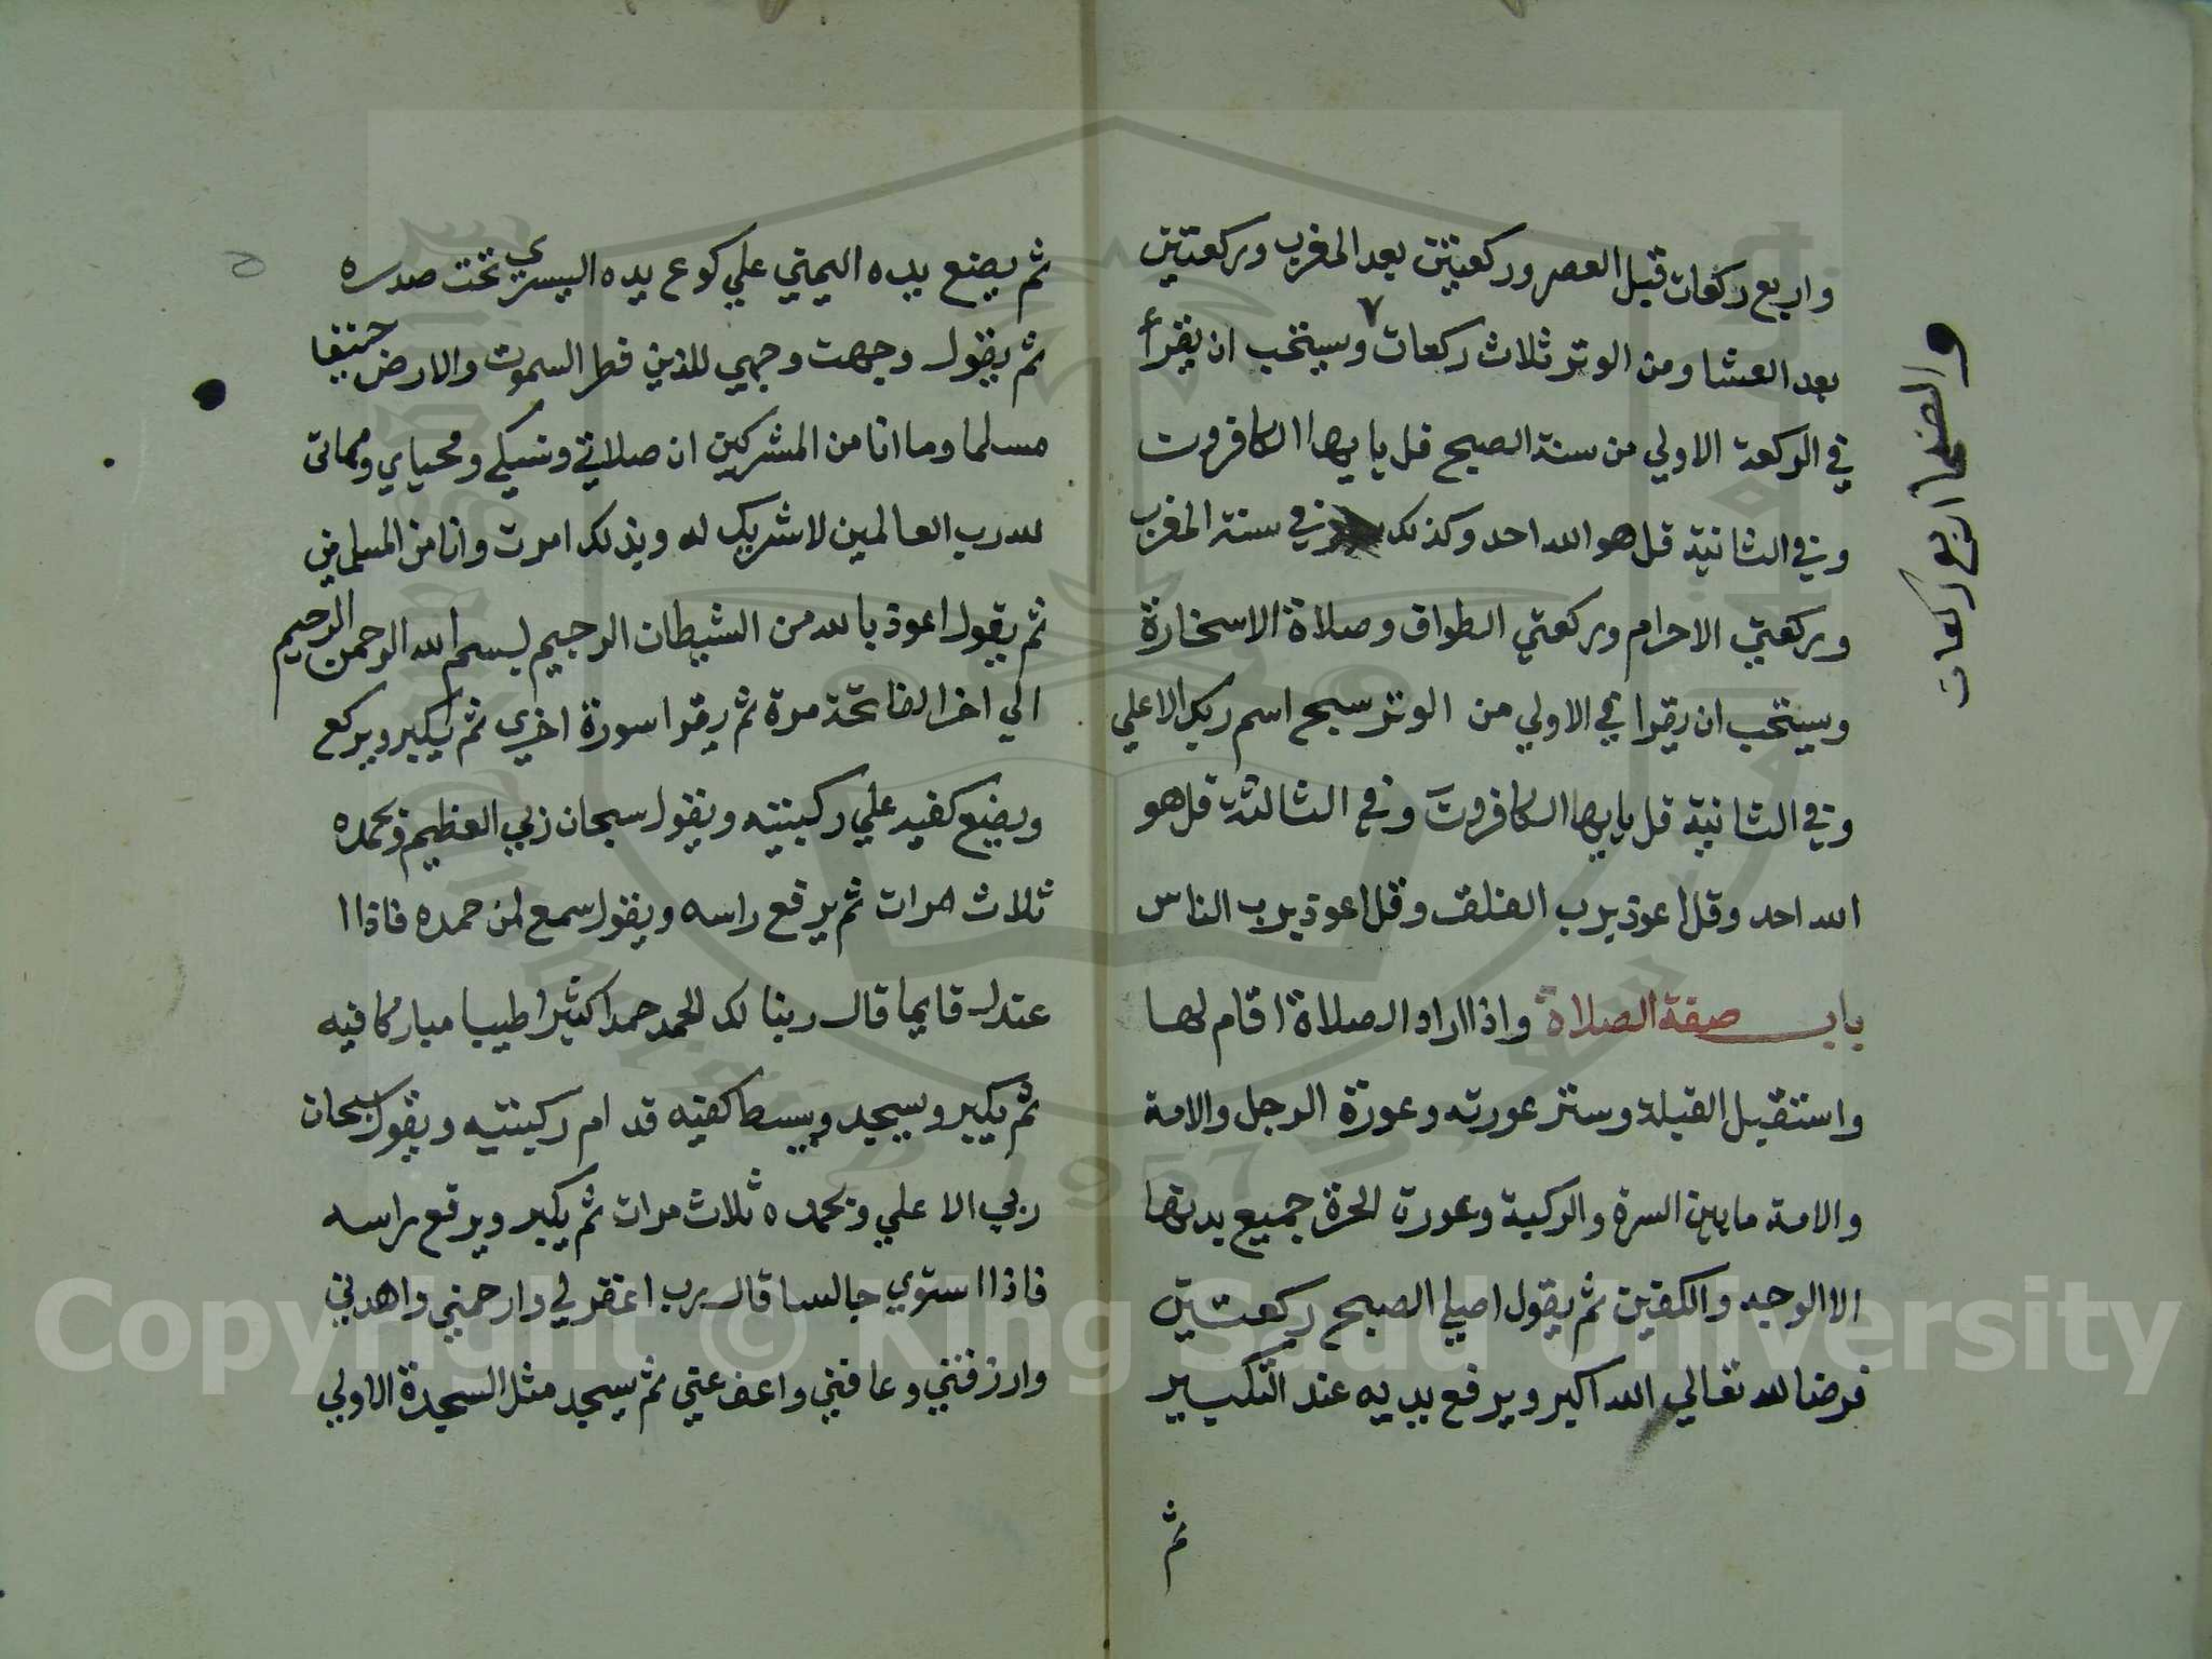 واربع ركعات قبل العصر وركعتين بعد المغرب وركعتين
بعد العشا ومن الوتر ثلاث ركعات ويستحب ان يقرأ
والضحا اربع ركعات
في الركعة الاولي من سنة الصبح قل يايها الكافروت
وفي الثانية قل هو الله احد وكذلك في سنة المغرب
وركعتي الاحرام وركعتي الطواف وصلاة الاستخارة
ويستحب ان يقرا في الاولي من الوتر سبح اسم ربك الاعلي
وفي الثانية قل يايها الكافروت وفي الثالثة قل هو
الله احد وقل اعوذ برب الفلق وقل اعوذ برب الناس
باب صفة الصلاة واذا اراد الصلاة اقام لها
واستقبل القبلة وستر عورته وعورة الرجل والامة
والامة ما بين السرة والركبة وعورة الحرة جميع بدنها
الا الوجه والكفين ثم يقول اصلي الصبح ركعتين
فرضا لله تعالي الله اكبر ويرفع يديه عند التكبير
ثم
ثم يضع يده اليمني علي كوع يده اليسري تحت صدره
ثم يقول وجهت وجهي للذي فطر السموت والارض حنيفا
مسلما وما انا من المشركين ان صلاتي ونسكي ومحياي ومماتى
لله رب العالمين لا شريك له وبذلك امرت وانا من المسلمين
ثم يقول اعوذ بالله من الشيطان الرجيم بسم الله الرحمن الرحيم
الي اخر الفاتحة مرة ثم يقرا سورة اخري ثم يكبر ويركع
ويضع كفيه علي ركبتيه ويقول سبحان ربي العظيم وبحمده
ثلاث مرات ثم يرفع راسه ويقول سمع لمن حمده فاذا ا
عتدل قايما قال ربنا لك الحمد حمدا كثيرا طيبا مباركا فيه
ثم يكبر ويسجد ويبسط كفيه قدام ركبتيه ويقول سبحان
ربي الاعلي وبحمده ثلاث مرات ثم يكبر ويرفع راسه
فاذا استوي جالسا قال رب اغفر لي وارحمني واهدني
وارزقني وعافني واعف عني ثم يسجد مثل السجدة الاولي
Copyright © King Saud University